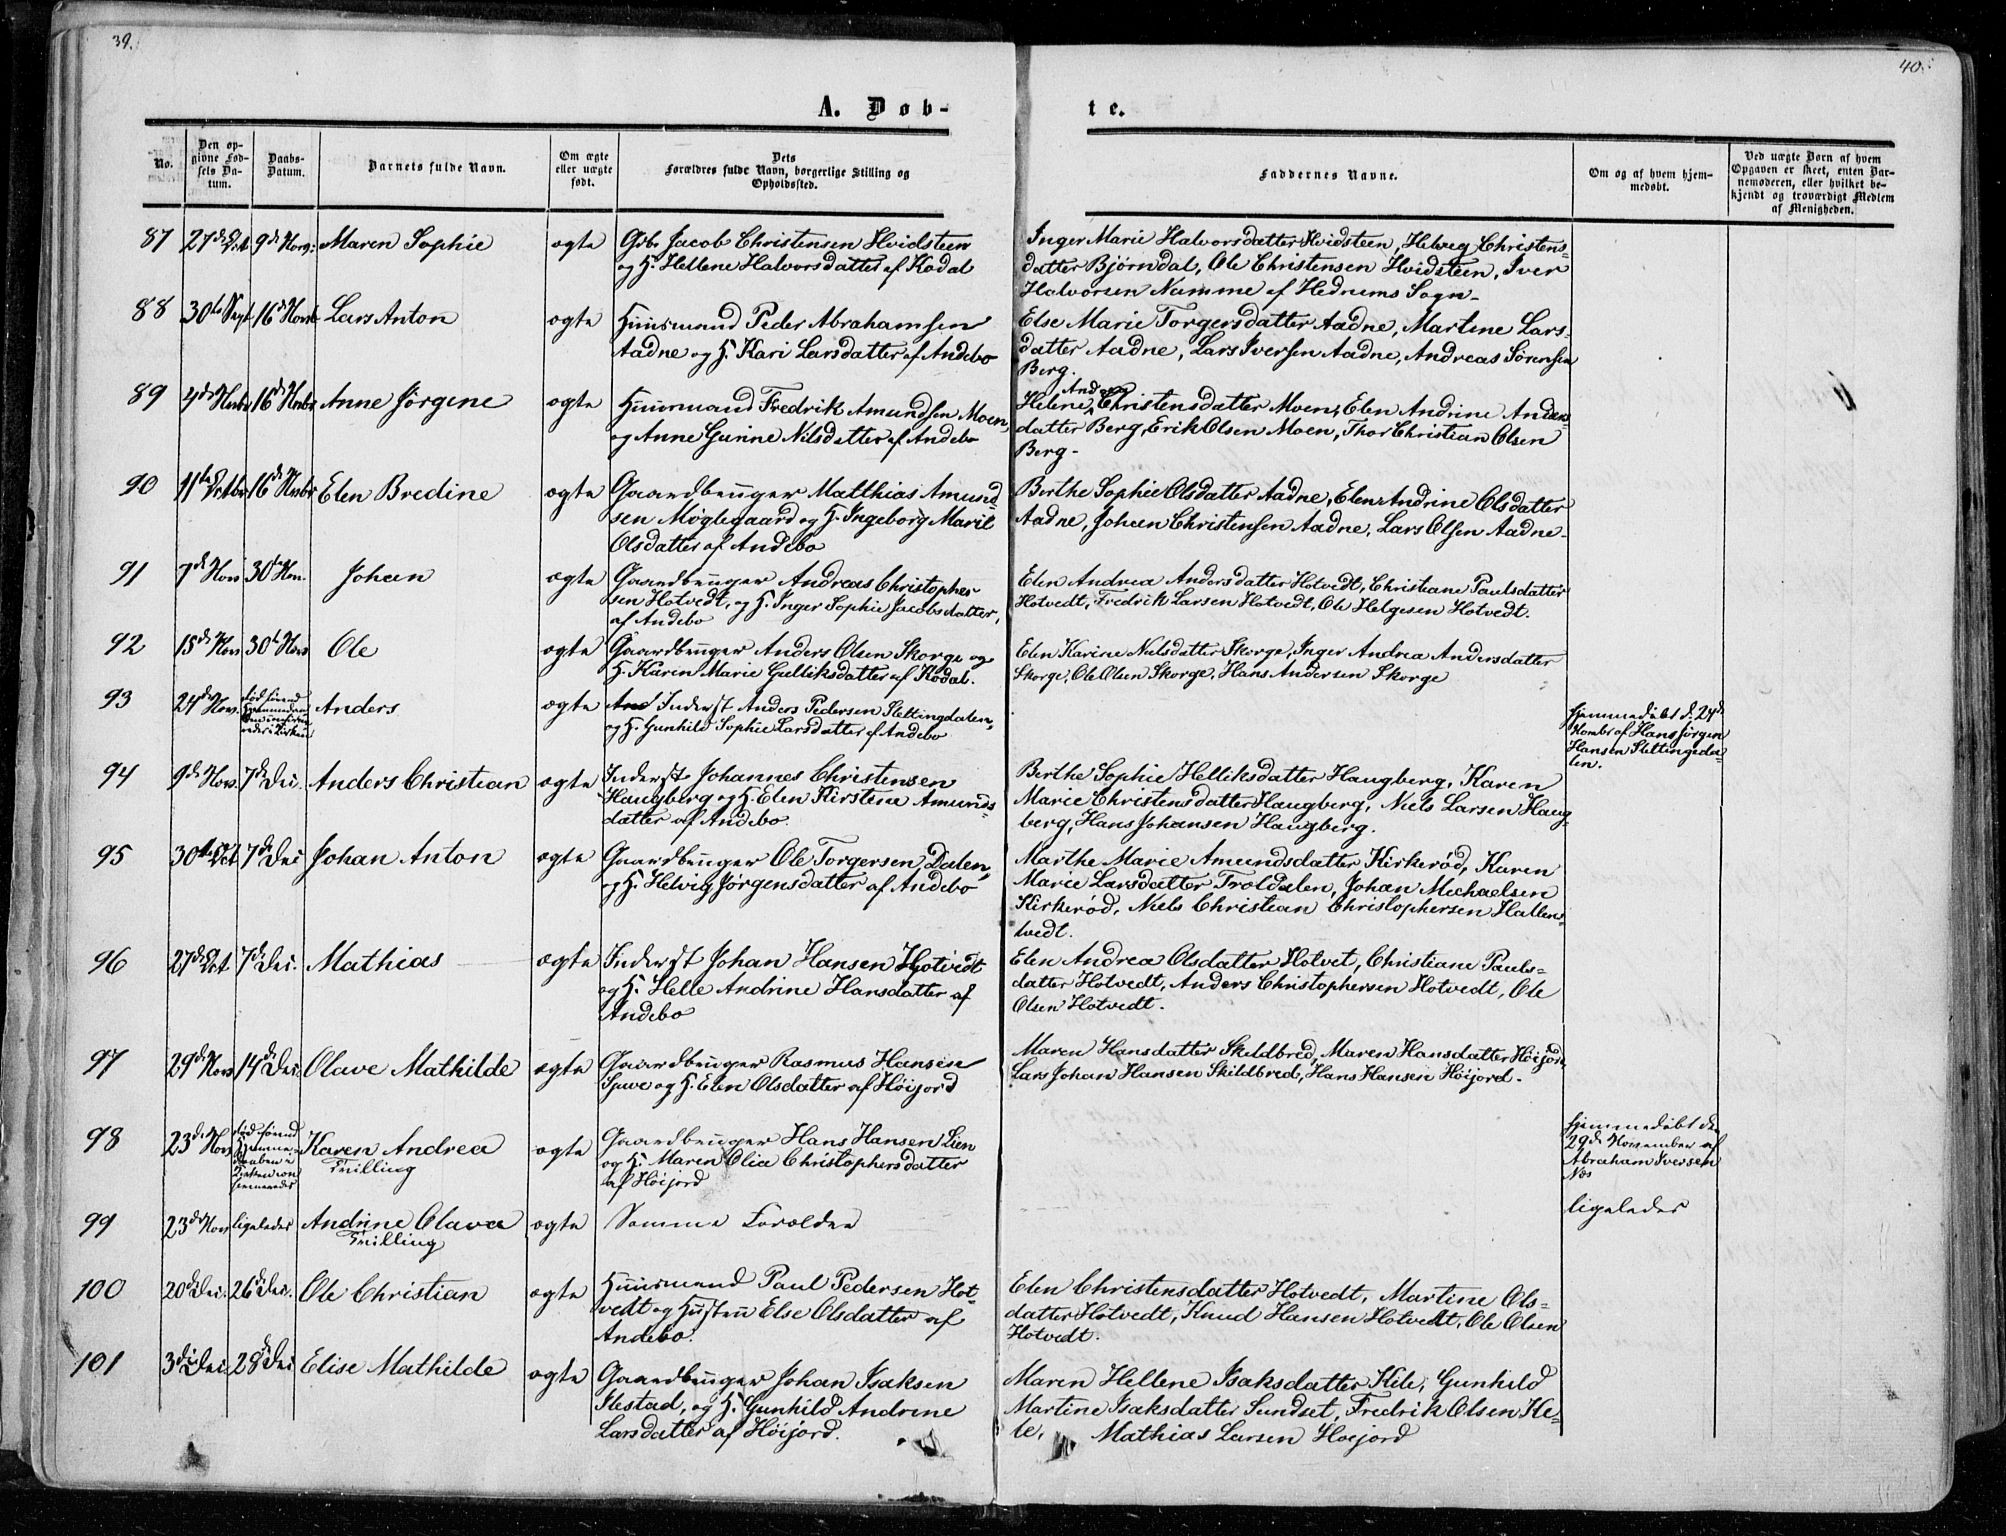 39.
40.
A. Døb-
te.
No.
Den opgivne Fødsels Datum.
Daabs-Datum.
Barnets fulde Navn.
Om ægte eller uægte født.
Dets Forældres fulde Navn, borgerlige Stilling og Opholdssted.
Faddernes Navne.
Om og af hvem hjemmedøbt.
Ved uægte Børn af hvem Opgaven er skeet, enten Barnemoderen, eller hvilket bekjendt og troværdigt Medlem af Menigheden.
87 27de Oct 9de Nov: Maren Sophie ægte Gdbr Jacob Christensen Hvidsteen
og H. Hellene Halvorsdatter af Kodal
Inger Marie Halvorsdatter Hvidsteen, Helvig Christens=
datter Bjørndal, Ole Christensen Hvidsteen, Iver
Halvorsen Namme af Hedrums Sogn-
88 30te Sept 16de Novb Lars Anton ægte Huusmand Peder Abrahamsen
Aadne og H. Kari Larsdatter af Andebo
Else Marie Torgersdatter Aadne, Martine Lars-
datter Aadne, Lars Iversen Aadne, Andreas Sørensen
Berg.
89 4de Novbr 16de Novbr Anne Jørgine ægte Huusmand Fredrik Amundsen Moen,
og Anne Gurine Nilsdatter af Andebo
Helene Christensdatter Moen, Elen Andrine Anders=
datter Berg, Erik Olsen Moen, Thor Christian Olsen
Berg-
90 11te Octbr 16de Novbr Elen Bredine ægte Gaardbruger Matthias Amund=
sen Møglegaard og H. Ingeborg Marie
Olsdatter af Andebo
Berthe Sophie Olsdatter Aadne, Elen Andrine Olsdatter
Aadne, Johan Christensen Aadne, Lars Olsen Aadne-
91 7de Nov 30te Nov. Johan ægte Gaardbruger Andreas Christopher
sen Hotvedt, og H. Inger Sophie Jacobsdatter,
af Andebo
Elen Andrea Andersdatter Hotvedt, Christiane Paulsdatter
Hotvedt, Fredrik Larsen Hotvedt, Ole Helgesen Hotvedt.
92 15de Nov 30te Nov Ole ægte Gaardbruger Anders Olsen Skorge og
H. Karen Marie Gulliksdatter af Kodal.
Elen Karine Nielsdatter Skorge, Inger Andrea Andersdatter
Skorge, Ole Olsen Skorge, Hans Andersen Skorge
93 24de Nov. død førend
Anders ægte Inderst Anders Pedersen Slettingdalen,
og H. Gunhild Sophie Larsdatter af Andebo
Hjemmedøbt d. 24de
Novbr af Hans Jørgen
Hansen Slettingeda-
len.
94 9de Nov. 7de Dec. Anders Christian ægte Inderst Johannes Christensen
Haugberg og H. Elen Kirstine Amunds=
datter af Andebo.
Berthe Sophie Helliksdatter Haugberg, Karen
Marie Christensdatter Haugberg, Niels Larsen Haug-
berg, Hans Johansen Haugberg.
95 30te Oct 7de Dec Johan Anton ægte Gaardbruger Ole Torgersen Dalen,
og H. Helvig Jørgensdatter af Andebo
Marthe Marie Amundsdatter Kirkerød, Karen
Marie Larsdatter Troldalen, Johan Michaelsen
Kirkerød, Niels Christian Christophersen Hallens-
tvedt.
96 27de Oct 7de Dec. Mathias ægte Inderst Johan Hansen Hotvedt
og H. Helle Andrine Hansdatter af
Andebo
Elen Andrea Olsdatter Hotvet, Christiane Pauls=
datter Hotvedt, Anders Christophersen Hotvedt, Ole
Olsen Hotvedt.
97 29de Nov 14de Dec. Olave Mathilde ægte Gaardbruger Rasmus Hansen
og H. Elen Olsdatter af Høijord
Maren Hansdatter Skildbred, Maren Hansdatter Høijord,
Lars Johan Hansen Skildbred, Hans Hansen Høijord.
98 23de Nov død førend
Hjemme-
daaben i
Kirken con
firmeredes
Karen Andrea
Trilling
ægte Gaardbruger Hans Hansen Lien
og H. Maren Olia Christophersdatter
af Høijord
Hjemmedøbt den
29de November af
Abraham Iversen
Næs
99 23de Nov ligeledes Andrine Olava
Trilling
ægte Samme Forældre
ligeledes
100 20de Dec. 26de Dec. Ole Christian ægte Huusmand Paul Pedersen Hot-
vedt og Hustru Else Olsdatter af
Andebo.
Elen Christensdatter Hotvedt, Martine Ols=
datter Hotvedt, Knud Hansen Hotvedt, Ole Olsen
Hotvedt.
101 3de Dec. 28de Dec Elise Mathilde ægte Gaardbruger Johan Isaksen
Ilestad, og H. Gunhild Andrine
Larsdatter af Høijord.
Maren Hellene Isaksdatter Kile, Gunhild
Martine Isaksdatter Sundset, Fredrik Olsen Ki-
le, Mathias Larsen Høijord